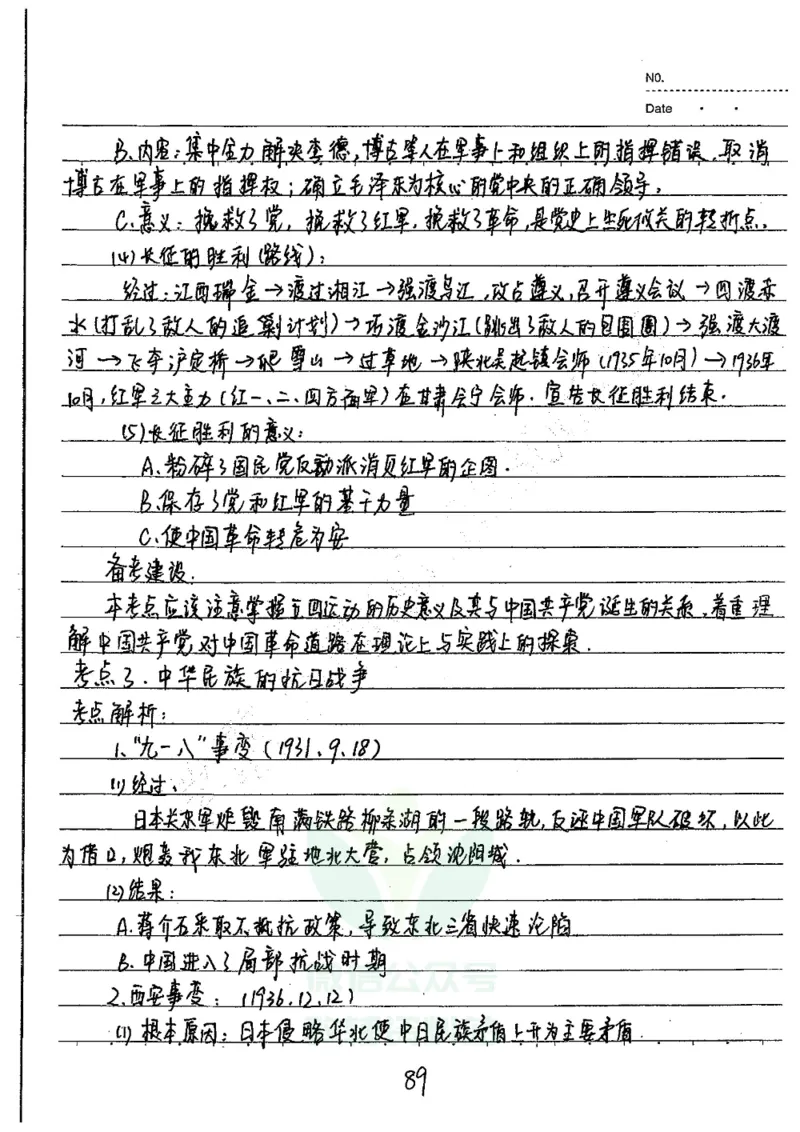 NO.
Date
B.内容:集中全力解决李德,博古等人在军事上和组织上的指挥错误,取消
博古在军事上的指挥权;确立毛泽东为核心的党中央的正确领导。
C.意义:挽救了党,挽救了红军,挽救了革命,是党史上生死攸关的转折点。
(4)长征的胜利(路线):
经过:江西瑞金→渡过湘江→强渡乌江,攻占遵义,召开遵义会议→四渡赤
水(打乱了敌人的追剿计划)→巧渡金沙江(跳出了敌人的包围圈)→强渡大渡
河→飞夺泸定桥→爬雪山→过草地→陕北吴起镇会师(1935年10月)→1936年
10月,红军三大主力(红一、二、四方面军)在甘肃会宁会师.宣告长征胜利结束.
(5)长征胜利的意义:
A.粉碎了国民党反动派消灭红军的企图.
B.保存了党和红军的基干力量
C.使中国革命转危为安
备考建设:
本考点应该注意掌握五四运动的历史意义及其与中国共产党诞生的关系,着重理
解中国共产党对中国革命道路在理论上与实践上的探索.
考点3.中华民族的抗日战争
考点解析:
1."九一八"事变(1931.9.18)
(1)经过.
日本关东军炸毁南满铁路柳条湖的一段路轨,反诬中国军队破坏,以此
为借口,炮轰我东北军驻地北大营,占领沈阳城.
(2)结果:
A.蒋介石采取不抵抗政策,导致东北三省快速沦陷
B.中国进入了局部抗战时期
2.西安事变:(1936.12.12)
(1)根本原因:日本侵略华北使中日民族矛盾上升为主要矛盾.
89